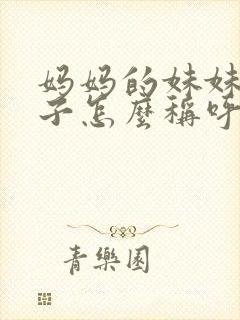 妈妈的妹妹
子怎麼稱呼
青樂園